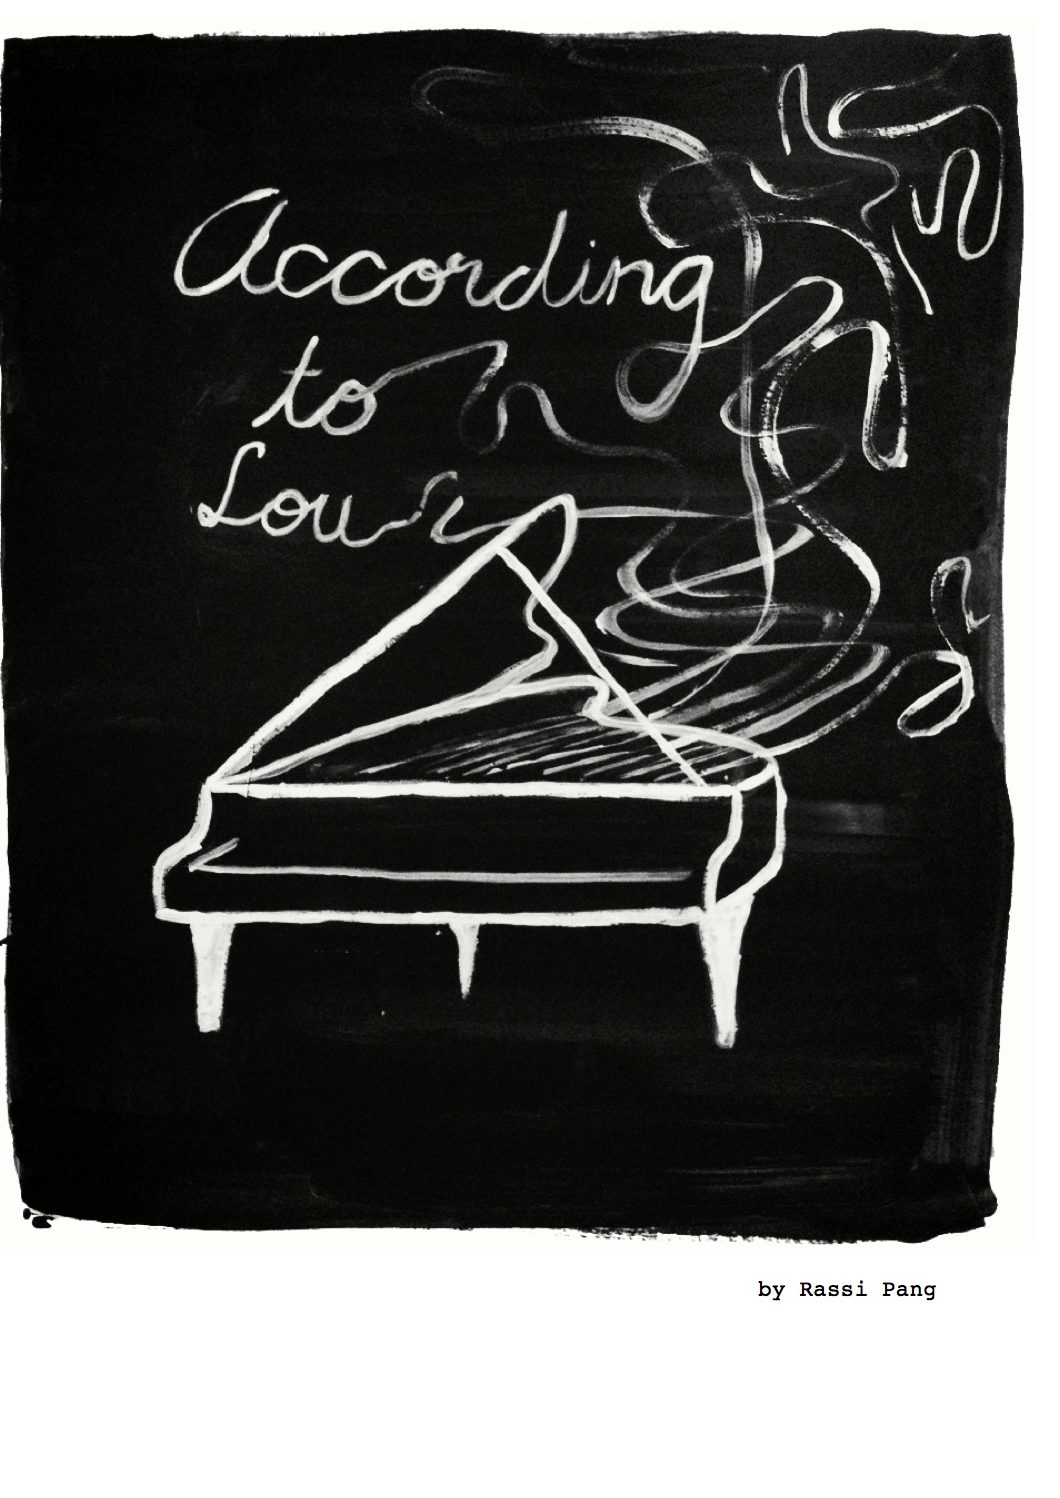 According
to
Lou
by Rassi Pang